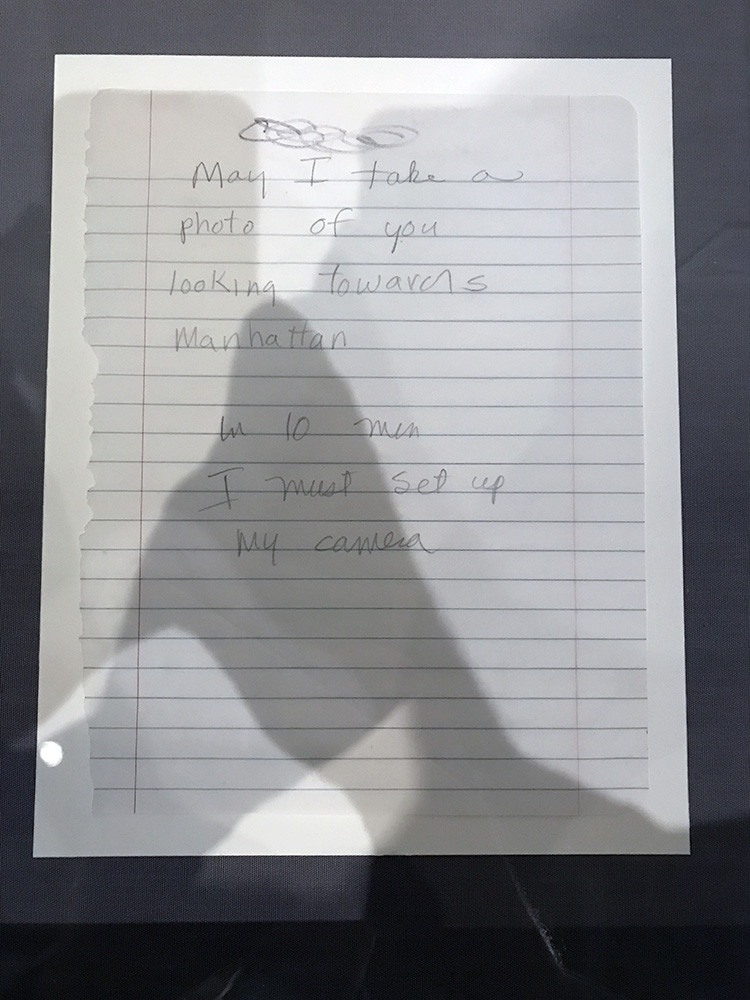 May I take a
photo of you
looking towards
Manhattan
In 10 min
I must set up
my camera